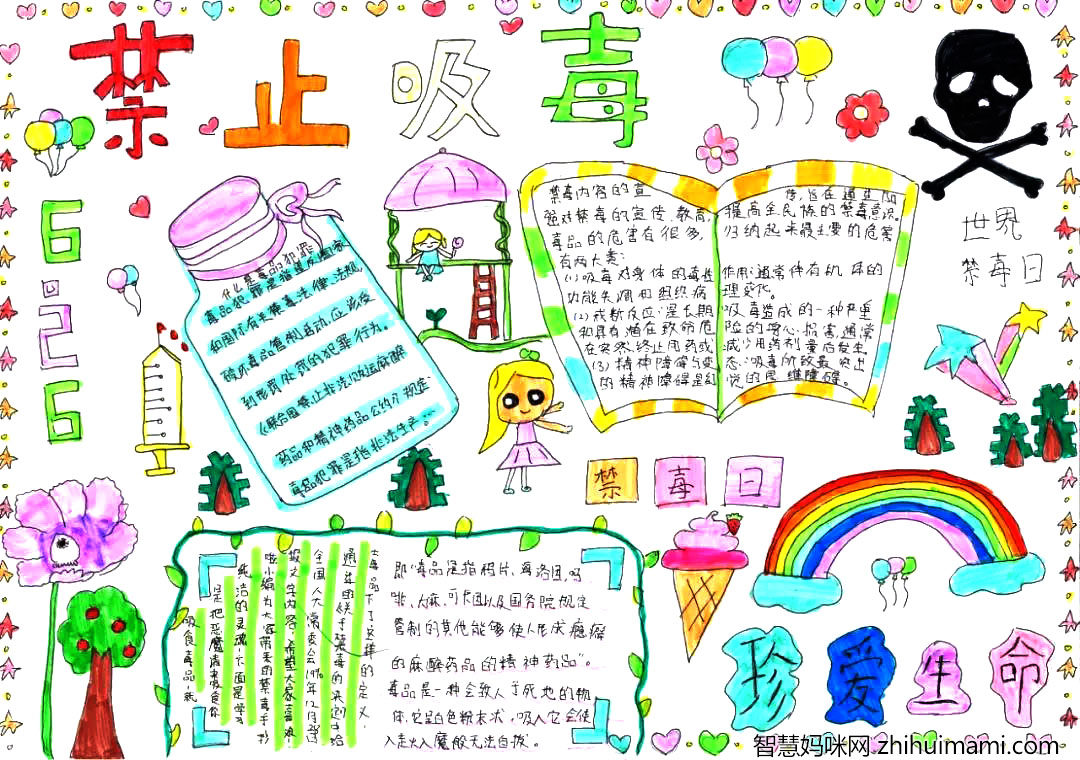 禁止吸毒
6.26
世界
禁毒日
什么是毒品犯罪
毒品犯罪是指违反国家
和国际有关禁毒法律、法规,
破坏毒品管制活动,应该受
到刑罚处罚的犯罪行为。
《联合国禁止非法贩运麻醉
药品和精神药品公约》规定:
毒品犯罪是指非法生产…
禁毒内容的宣
强对禁毒的宣传、教育,
毒品的危害有很多,
有两大类:
(1)吸毒对身体的毒性
功能失调和组织病
(2)戒断反应:是长期
和具有潜在致命危
在突然终止用药或
(3)精神障碍与变
的精神障碍是幻
传,旨在通过加
提高全民族的禁毒意识。
归纳起来最主要的危害
作用:通常伴有机体的
理变化。
吸毒造成的一种严重
险的身心损害,通常
减少用药剂量后发生
态:吸毒所致最突出
觉的思维障碍。
禁毒日
毒品下了这样的定义,
通过的关于禁毒的决定中给
全国人大常委会1990年12月28日
报文字内容,希望大家喜欢!
啦小编为大家带来的禁毒手抄
纯洁的灵魂,下面是学
是把恶魔请来吸食你
吸食毒品,就
即“毒品是指鸦片、海洛因、吗
啡、大麻、可卡因以及国务院规定
管制的其他能够使人形成瘾癖
的麻醉药品的精神药品”。
毒品是一种会致人于死地的物
体,它呈白色粉末状,吸入它会使
人走火入魔般无法自拔。
珍爱生命
智慧妈咪网.zhihuimami.com